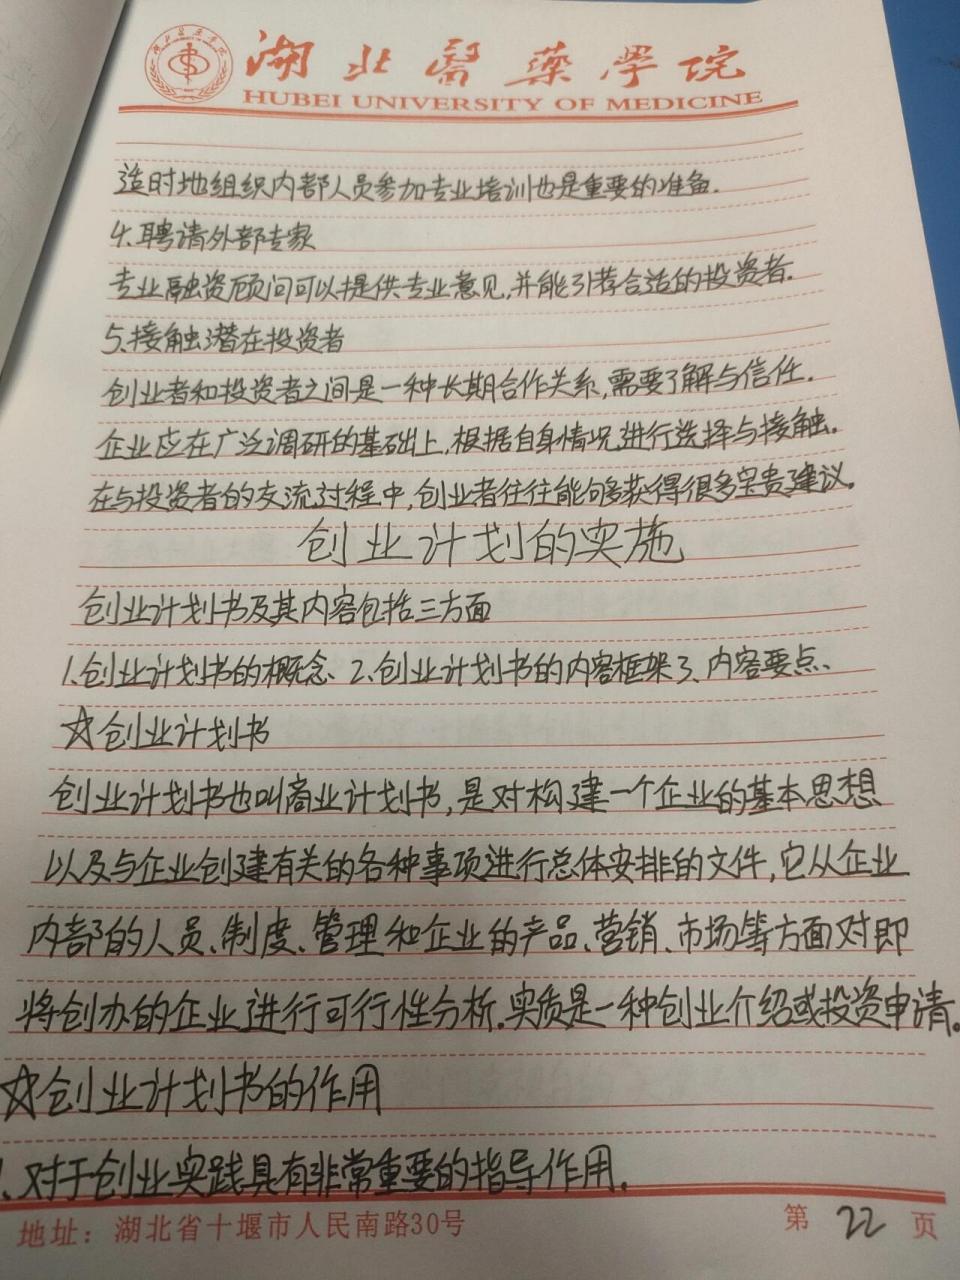 湖北醫藥學院
HUBEI UNIVERSITY OF MEDICINE
适时地组织内部人员参加专业培训也是重要的准备.
4.聘请外部专家
专业融资顾问可以提供专业意见,并能引荐合适的投资者.
5.接触潜在投资者
创业者和投资者之间是一种长期合作关系,需要了解与信任.
企业应在广泛调研的基础上,根据自身情况进行选择与接触.
在与投资者的交流过程中,创业者往往能够获得很多宝贵建议。
创业计划的实施
创业计划书及其内容包括三方面
1.创业计划书的概念、2.创业计划书的内容框架3、内容要点、
☆创业计划书
创业计划书也叫商业计划书,是对构建一个企业的基本思想
以及与企业创建有关的各种事项进行总体安排的文件,它从企业
内部的人员、制度、管理和企业的产品、营销、市场等方面对即
将创办的企业进行可行性分析.实质是一种创业介绍或投资申请。
☆创业计划书的作用
1.对于创业实践具有非常重要的指导作用.
地址：湖北省十堰市人民南路30号
第 22 页